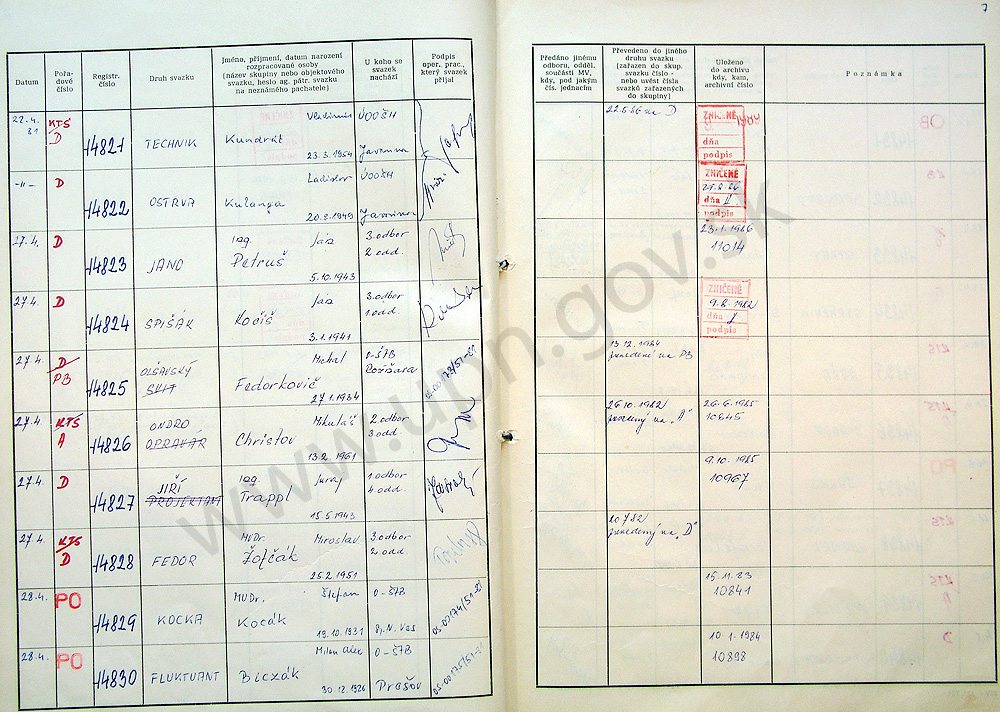 7
Datum
Pořadové číslo
Registr. číslo
Druh svazku
Jméno, příjmení, datum narození rozpracované osoby (název skupiny nebo objektového svazku, heslo ag. pátr. svazku na neznámého pachatele)
U koho se svazek nachází
Podpis oper. prac., který svazek přijal
Předáno jinému odboru, odděl. součásti MV, kdy, pod jakým čís. jednacím
Převedeno do jiného druhu svazku (zařazen do skup. svazku číslo - nebo uvést čísla svazků zařazených do skupiny)
Uloženo do archivu kdy, kam, archivní číslo
Poznámka
22.4. 81 KTŠ D 14821 TECHNIK Vladimír Kundrát 23.3.1954 ÚOOŠH Javorina
22.5.86 na D
ZNIČENÉ
dňa
podpis
-"- D 14822 OSTRVA Ladislav Kulanga 20.3.1949 ÚOOŠH Javorina
ZNIČENÉ
dňa
podpis
27.4. D 14823 JANO Ing. Ján Petruš 5.10.1943 3.odbor 2.odd.
23.1.1986
11014
27.4. D 14824 SPIŠÁK Ján Kočiš 3.1.1941 3.odbor 1.odd.
ZNIČENÉ
9.8.1982
dňa
podpis
27.4. D PB 14825 OLŠAVSKÝ SKIT Michal Fedorkovič 27.1.1934 O-ŠTB Rožňava
13.12.1984
zavedené na PB
27.4. KTŠ A 14826 ONDRO OPRAVÁR Mikuláš Christov 13.2.1961 2.odbor 3.odd
26.10.1982 zavedený na "A"
26.6.1985
10845
27.4. D 14827 JIŘÍ PROJEKTANT Ing. Juraj Trappl 15.5.1943 1.odbor 4.odd.
9.10.1985
10967
27.4. KTŠ D 14828 FEDOR MUDr. Miroslav Žofčák 25.2.1951 3.odbor 2.odd
zavedený na "D"
28.4. PO 14829 KOCKA MUDr. Štefan Kocák 19.10.1931 O-ŠTB Sp.N.Ves OS-00174/51-21
15.11.83
10841
28.4. PO 14830 FLUKTUANT Milan Biczák 30.12.1926 O-ŠTB Prešov OS-00175/51-21
10.1.1984
10898
www.upn.gov.sk